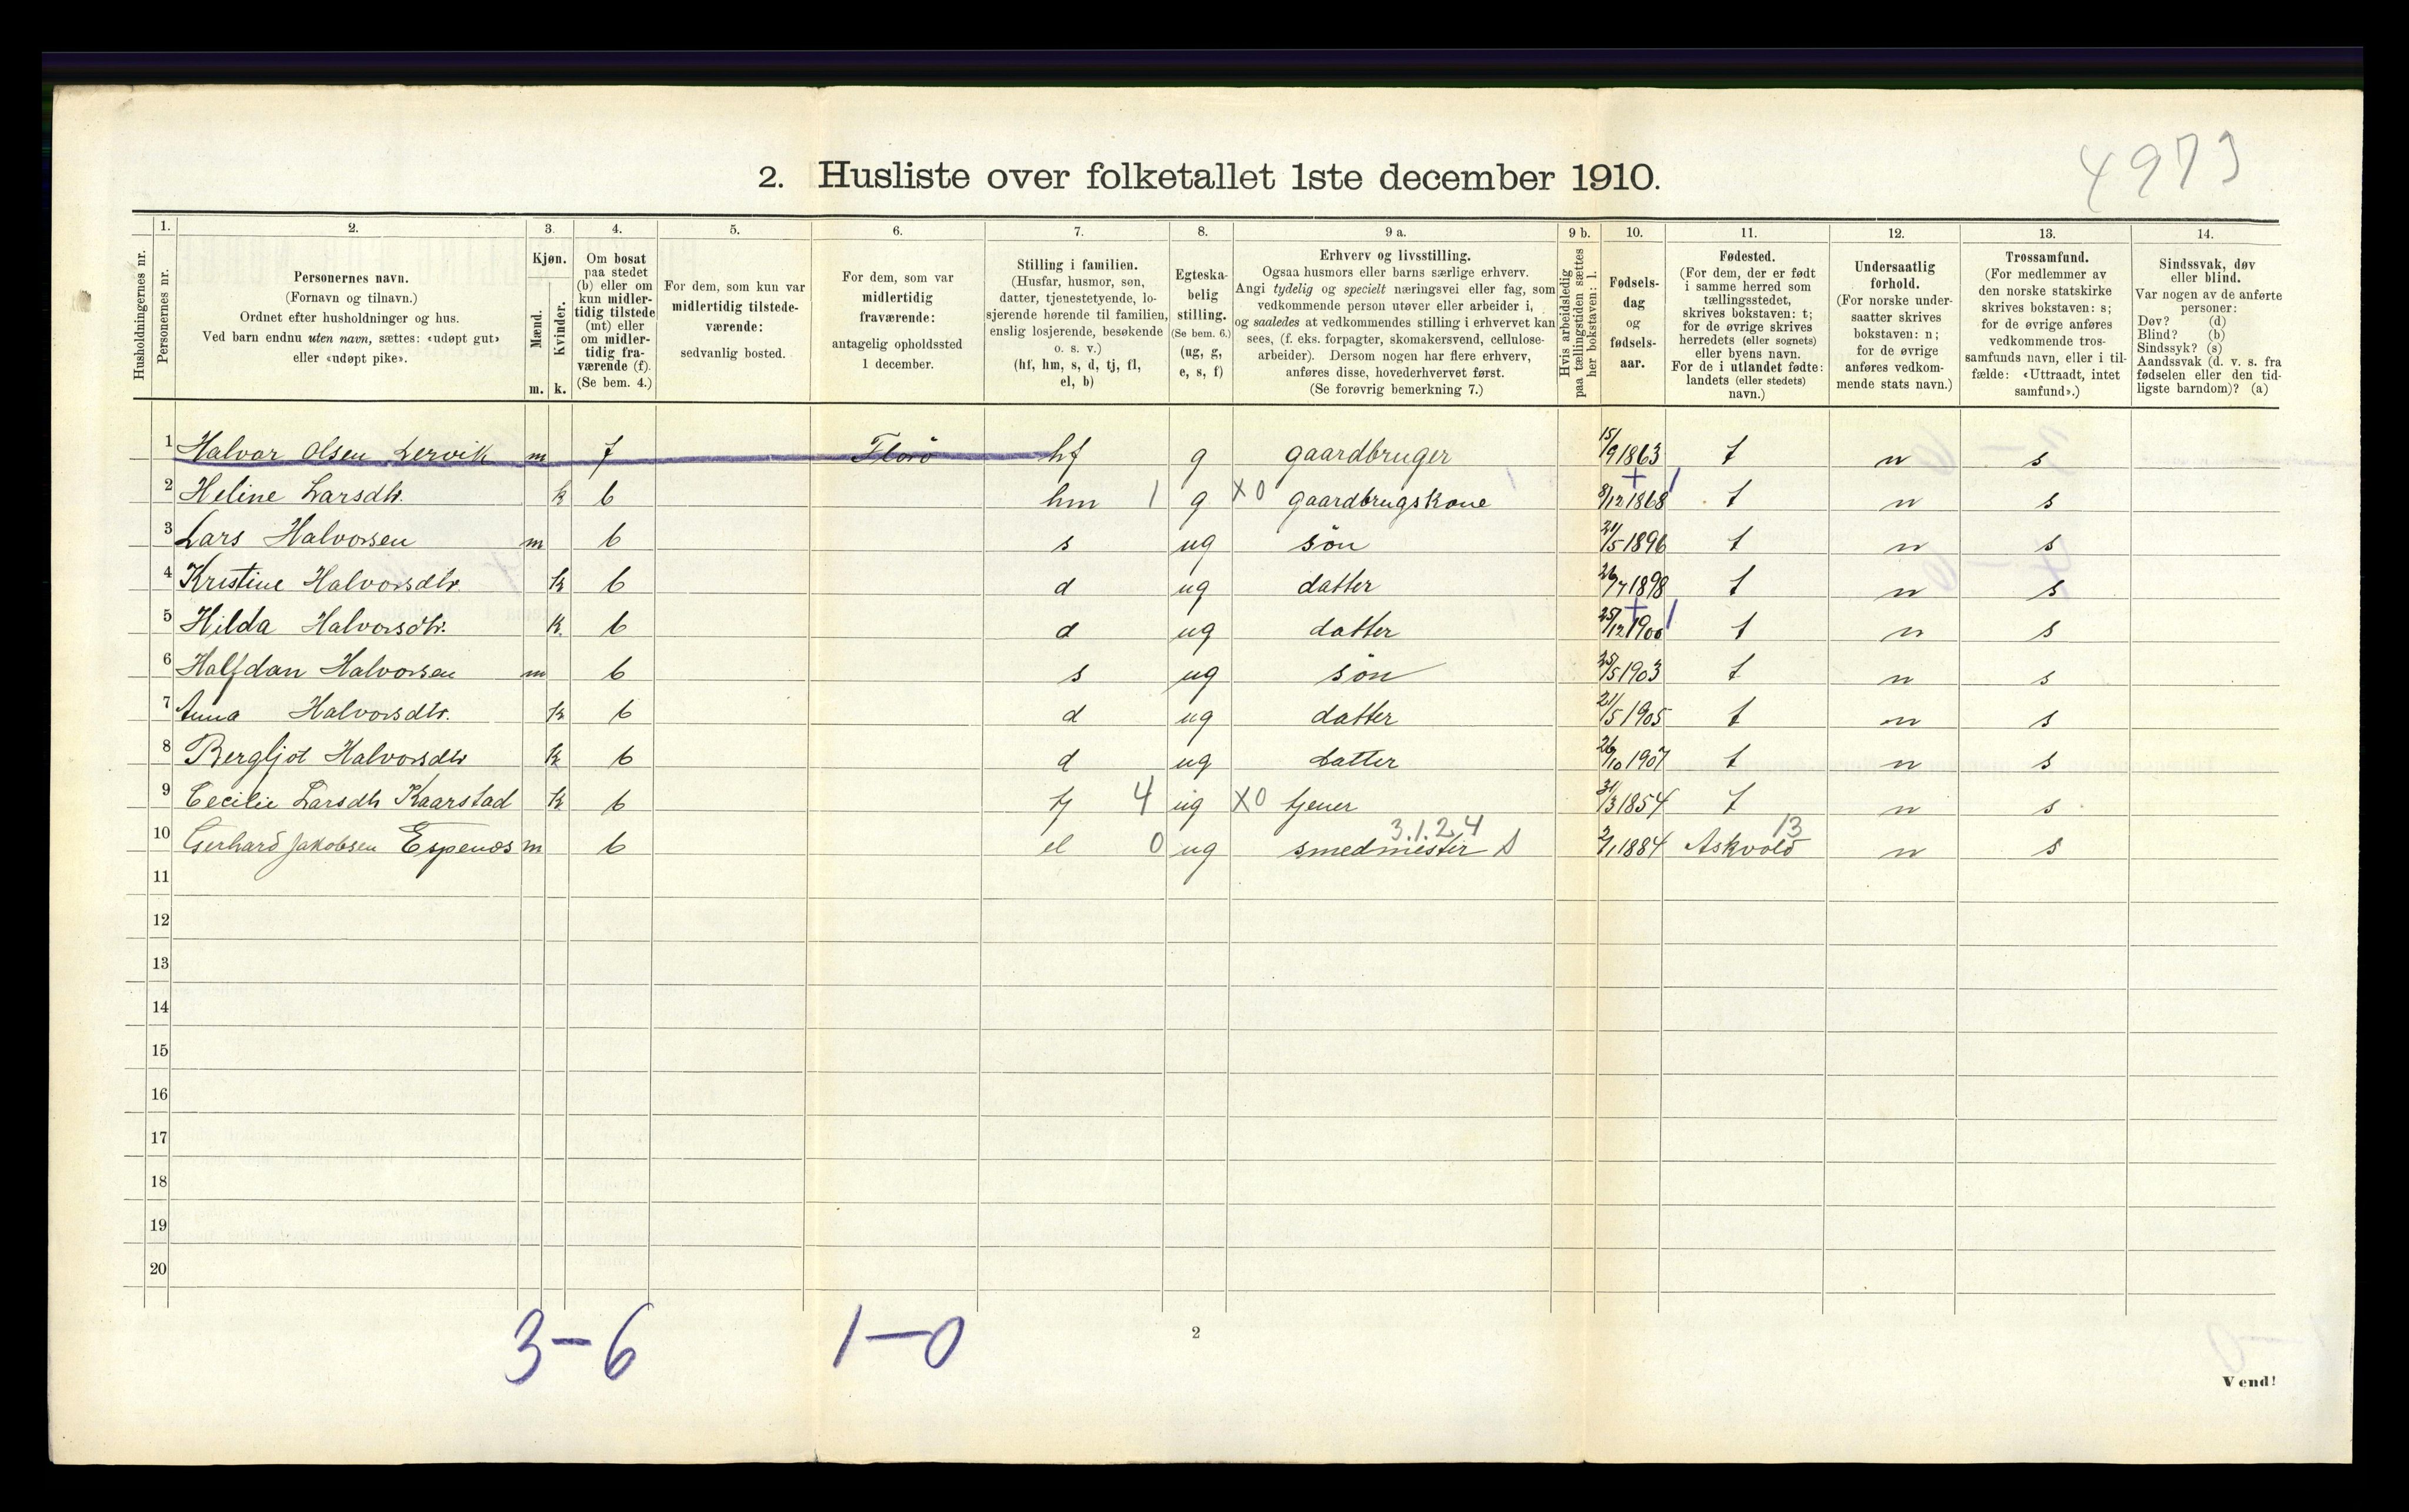 4973
2. Husliste over folketallet 1ste december 1910.
Husholdningernes nr.
1. Personernes nr.
2. Personernes navn.
(Fornavn og tilnavn.)
Ordnet efter husholdninger og hus.
Ved barn endnu uten navn, sættes: «udøpt gut»
eller «udøpt pike».
3. Kjøn.
Mænd. m.
Kvinder. k.
4. Om bosat
paa stedet
(b) eller om
kun midler-
tidig tilstede
(mt) eller
om midler-
tidig fra-
værende (f).
(Se bem. 4.)
5. For dem, som kun var
midlertidig tilstede-
værende:
sedvanlig bosted.
6. For dem, som var
midlertidig
fraværende:
antagelig opholdssted
1 december.
7. Stilling i familien.
(Husfar, husmor, søn,
datter, tjenestetyende, lo-
sjerende hørende til familien,
enslig losjerende, besøkende
o. s. v.)
(hf, hm, s, d, tj, fl,
el, b)
8. Egteska-
belig
stilling.
(Se bem. 6.)
(ug, g,
e, s, f)
9 a. Erhverv og livsstilling.
Ogsaa husmors eller barns særlige erhverv.
Angi tydelig og specielt næringsvei eller fag, som
vedkommende person utøver eller arbeider i,
og saaledes at vedkommendes stilling i erhvervet kan
sees, (f. eks. forpagter, skomakersvend, cellulose-
arbeider). Dersom nogen har flere erhverv,
anføres disse, hovederhvervet først.
(Se forøvrig bemerkning 7.)
9 b. Hvis arbeidsledig
paa tællingstiden sættes
her bokstaven: l.
10. Fødsels-
dag
og
fødsels-
aar.
11. Fødested.
(For dem, der er født
i samme herred som
tællingsstedet,
skrives bokstaven: t;
for de øvrige skrives
herredets (eller sognets)
eller byens navn.
For de i utlandet fødte:
landets (eller stedets)
navn.)
12. Undersaatlig
forhold.
(For norske under-
saatter skrives
bokstaven: n;
for de øvrige
anføres vedkom-
mende stats navn.)
13. Trossamfund.
(For medlemmer av
den norske statskirke
skrives bokstaven: s;
for de øvrige anføres
vedkommende tros-
samfunds navn, eller i til-
fælde: «Uttraadt, intet
samfund».)
14. Sindssvak, døv
eller blind.
Var nogen av de anførte
personer:
Døv? (d)
Blind? (b)
Sindssyk? (s)
Aandssvak (d. v. s. fra
fødselen eller den tid-
ligste barndom)? (a)
1 Halvor Olsen Lervik m f Florö hf g gaardbruger 15/9 1863 t n s
2 Heline Larsdtr. k b hm 1 g X0 gaardbrugskone 8/12 1868 t n s
3 Lars Halvorsen m b s ug sön 21/5 1896 t n s
4 Kristine Halvorsdtr. k b d ug datter 26/7 1898 t n s
5 Hilda Halvorsdtr. k. b d ug datter 25/12 1900 t n s
6 Halfdan Halvorsen m b s ug sön 25/5 1903 t n s
7 Anna Halvorsdtr. k b d ug datter 21/5 1905 t n s
8 Bergljot Halvorsdtr k b d ug datter 26/10 1907 t n s
9 Cecilie Larsdtr Kaarstad k b tj 4 ug X0 tjener 31/3 1854 t n s
3.1.2.4 13
10 Gerhard Jakobsen Espenes m b el 0 ug smedmester s 2/1 1884 Askvold n s
11
12
13
14
15
16
17
18
19
20
3-6 1-0
2
Vend!